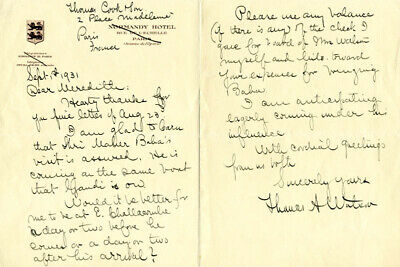 Thomas Cook & Son
2 Place Madeleine
Paris
France
NORMANDY HOTEL
RUE DE L'ECHELLE
PARIS
Sept. 1931
Dear Meredith:
Hearty thanks for
your fine letter of Aug 23.
I am glad to learn
that Shri Meher Baba's
visit is assured. He is
coming on the same boat
that Gandhi is on.
Would it be better for
me to be at E. Challacombe
a day or two before he
comes or a day or two
after his arrival?
Please use any balance
if there is any of the check I
gave for board of Mrs Watson
myself and kids toward
your expenses for bringing
Baba
I am anticipating
eagerly coming under his
influence
With cordial greetings
from us both
Sincerely yours
Thomas A Watson